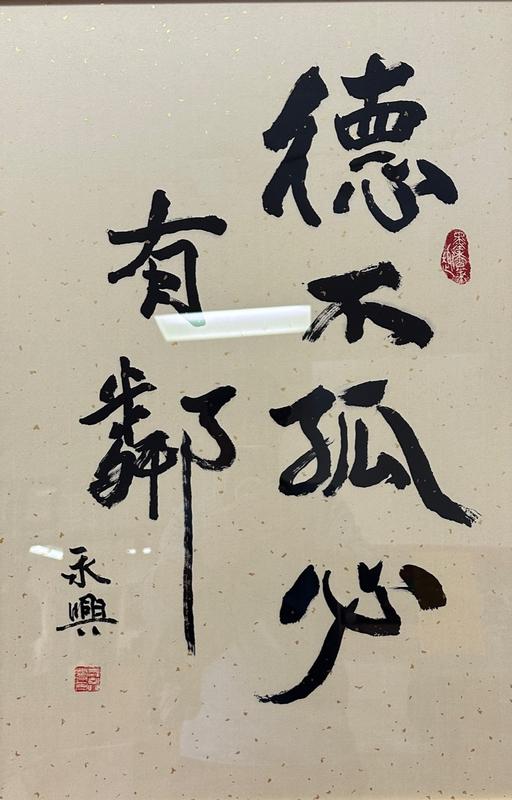 德不孤必
有鄰
永興